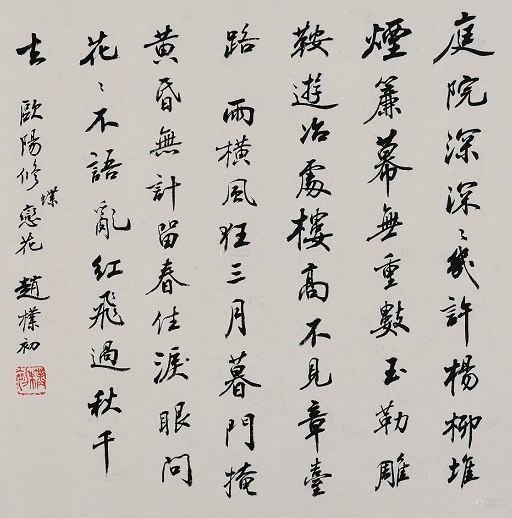 庭院深深〻幾許楊柳堆
煙簾幕無重數玉勒雕
鞍遊冶處樓高不見章臺
路 雨橫風狂三月暮門掩
黄昏無計留春住淚眼問
花〻不語亂紅飛過秋千
去 歐陽修蝶戀花 趙樸初